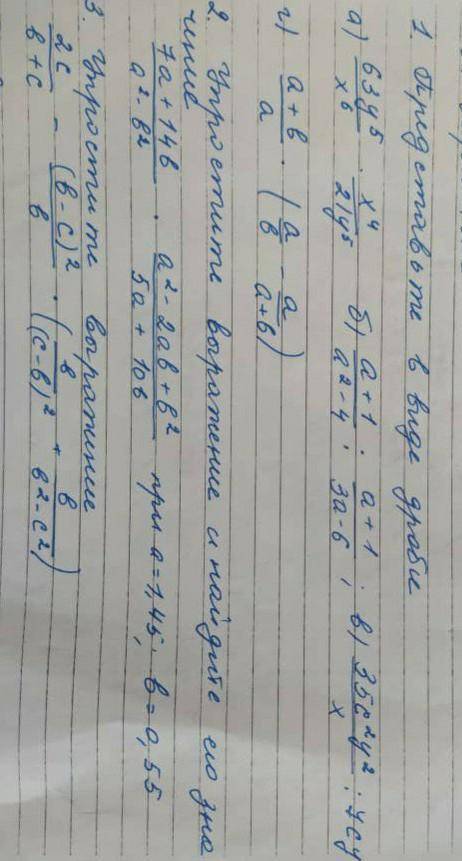 1. Представьте в виде дроби
а) 63y⁵/x⁶ · x⁴/2y⁵ б) a+1/a²-4 : a+1/3a-6 ; в) 35c²y²/x : 7cy
г) a+b/a · (a/b - a/a+b)
2. Упростите выражение и найдите его зна
чение
7a+14b/a²-b² · a²-2ab+b²/5a+10b при a=1,45; b=0,55
3. Упростите выражение
2c/b+c - (b-c)²/b · (b/(c-b)² + b/b²-c²)